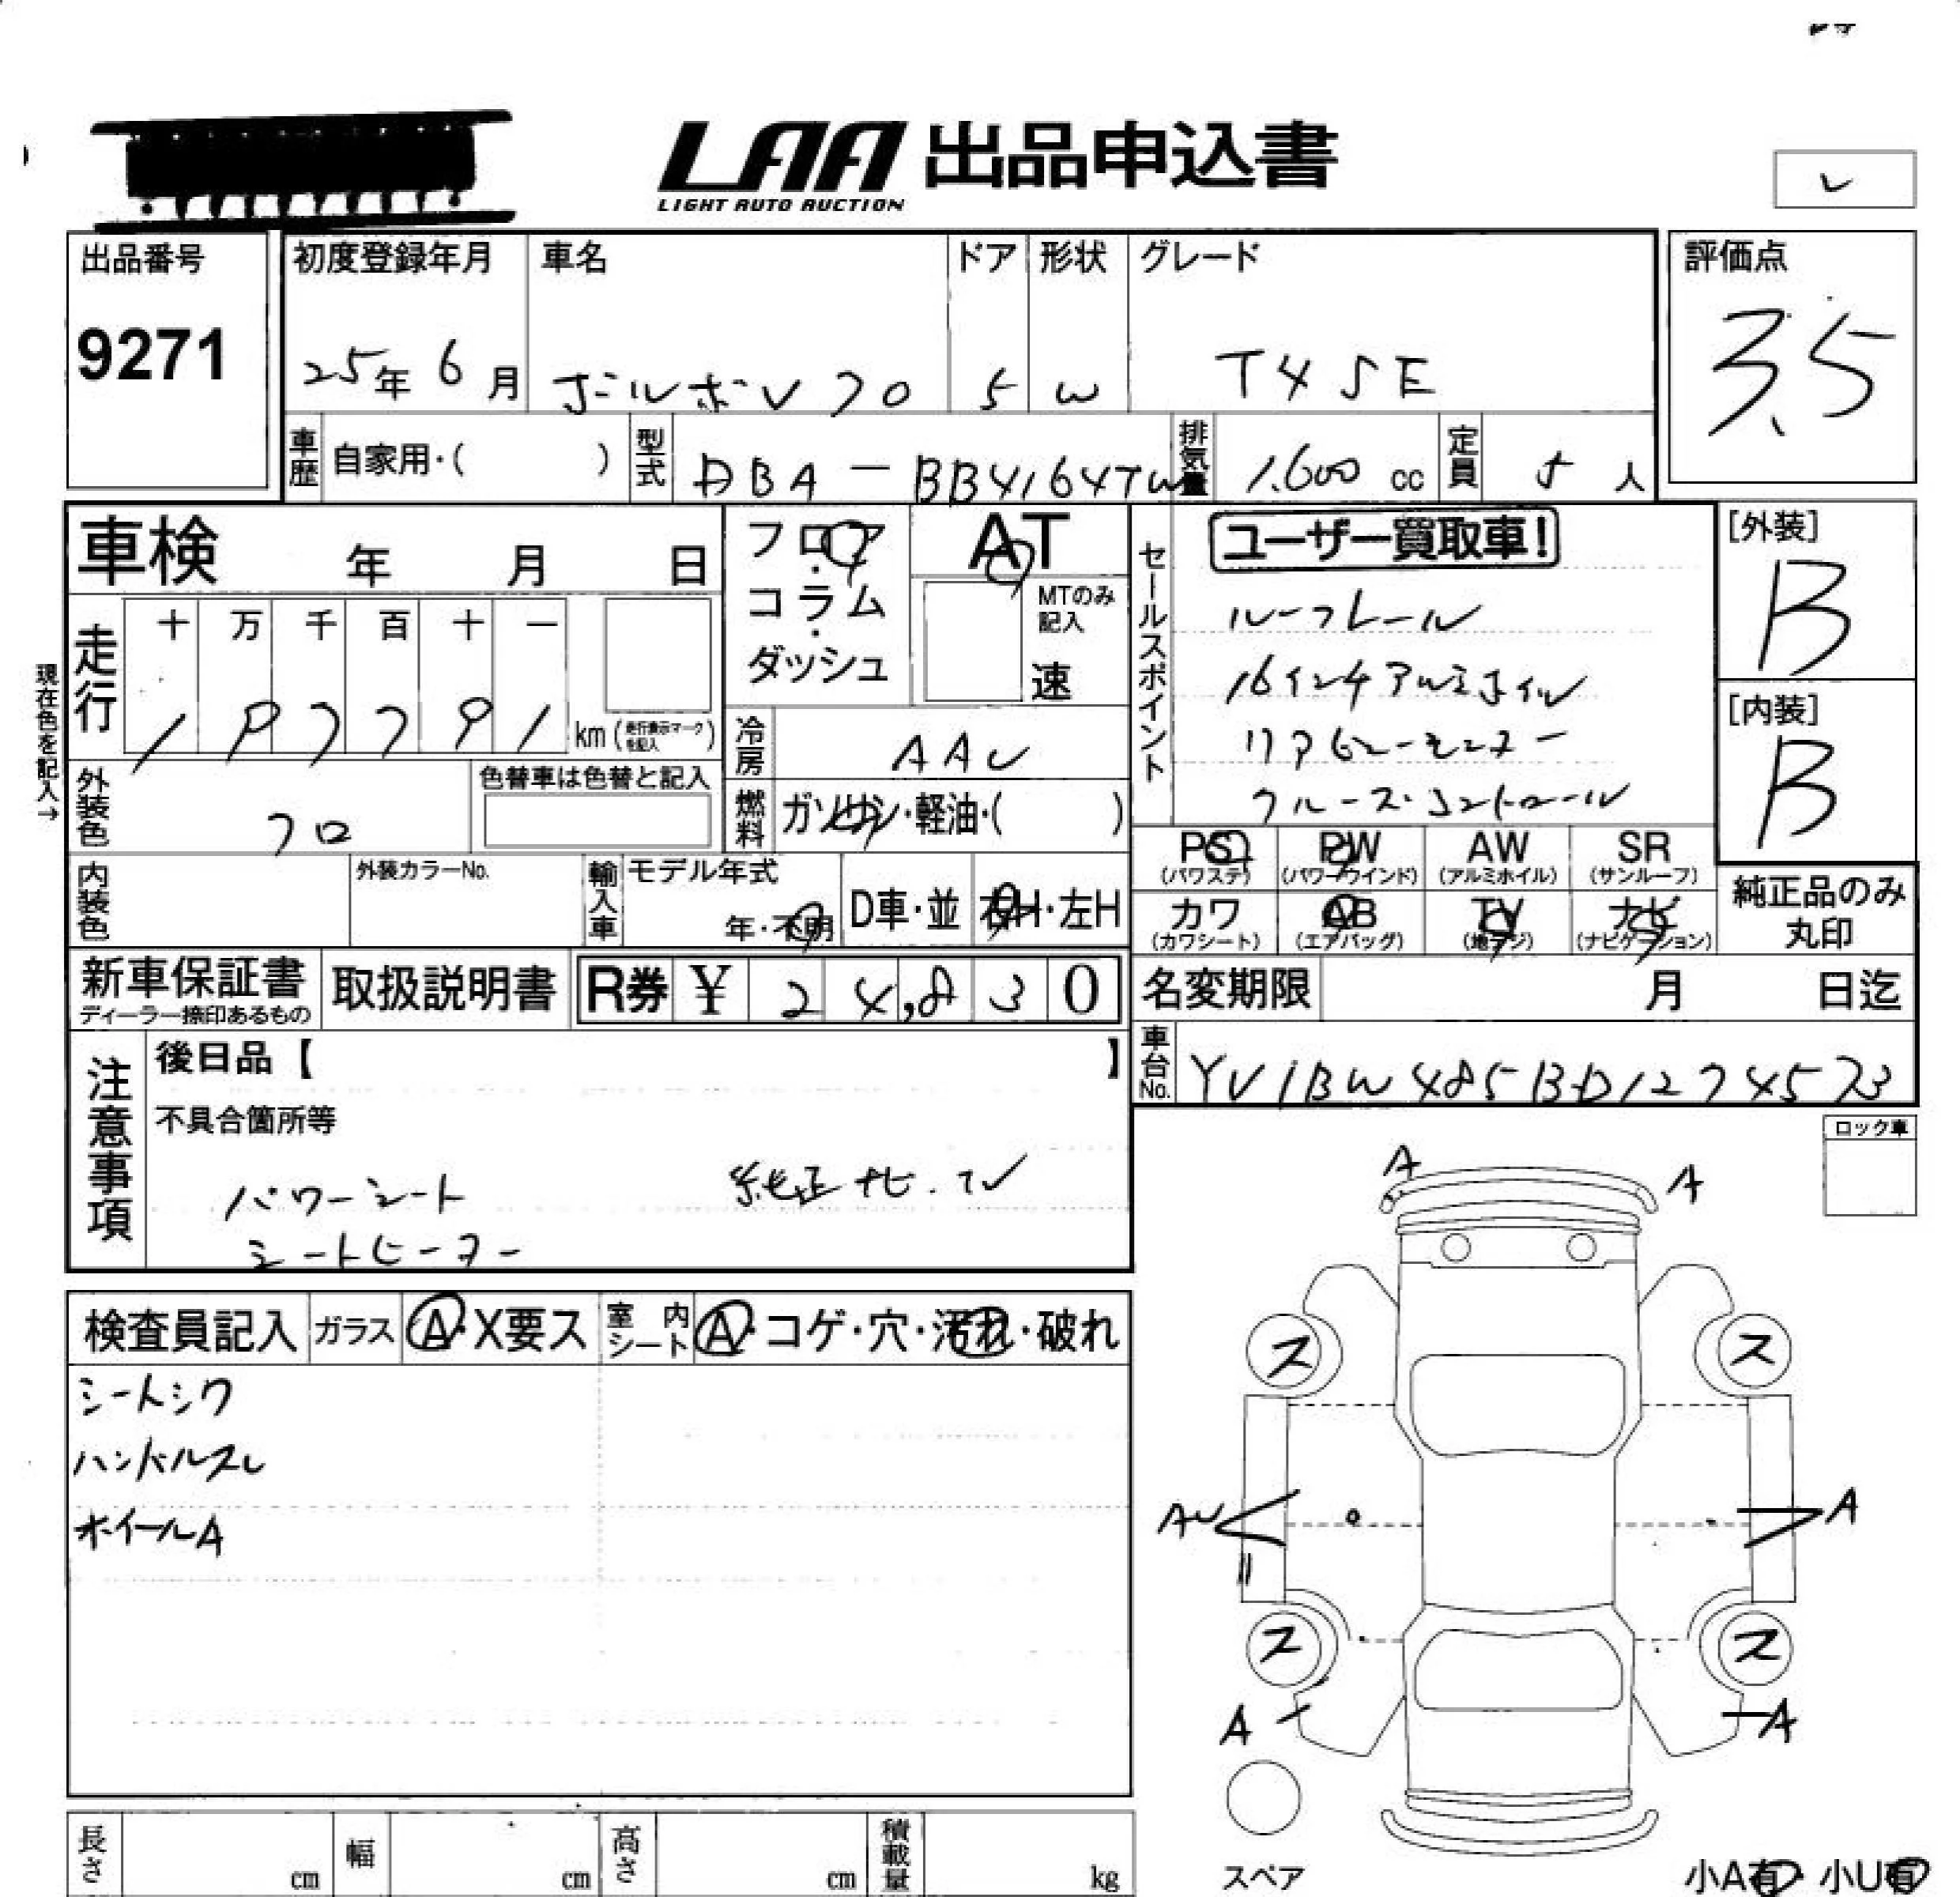 LAA 出品申込書
LIGHT AUTO AUCTION
レ
出品番号
9271
初度登録年月
25年6月
車名
ボルボV70
ドア
5
形状
W
グレード
T4 SE
評価点
3.5
車歴 自家用・( )
型式 DBA-BB4164TW
排気量 1,600 cc
定員 5 人
車検 年 月 日
走行 十 万 千 百 十 一
km (走行表示マークを記入)
現在色を記入→
外装色 クロ
色替車は色替と記入
内装色
外装カラーNo.
フロア・コラム・ダッシュ
AT
MTのみ記入
速
冷房 AAC
燃料 ガソリン・軽油・( )
輸入車 モデル年式
年・不明
D車・並
右H・左H
セールスポイント
ユーザー買取車!
ルーフレール
16インチアルミホイル
リアセンーセンサー
クルーズ・コントロール
[外装]
B
[内装]
B
PS (パワステ)
PW (パワーウインド)
AW (アルミホイル)
SR (サンルーフ)
カワ (カワシート)
AB (エアバッグ)
TV (地デジ)
ナビ (ナビゲーション)
純正品のみ丸印
新車保証書 ディーラー捺印あるもの
取扱説明書
R券 ¥ 24,830
名変期限 月 日迄
車台No. YV1BW485BD1274573
注意事項
後日品【 】
不具合箇所等
パワーシート 純正ナビ.TV
シートヒーター
検査員記入
ガラス A・X要ス
室内シート A・コゲ・穴・汚れ・破れ
シートシワ
ハンドルスレ
ホイールA
ロック車
A
A
ス
ス
AU
A
ス
ス
A
A
スペア
小A有・小U有
長さ cm
幅 cm
高さ cm
積載量 kg